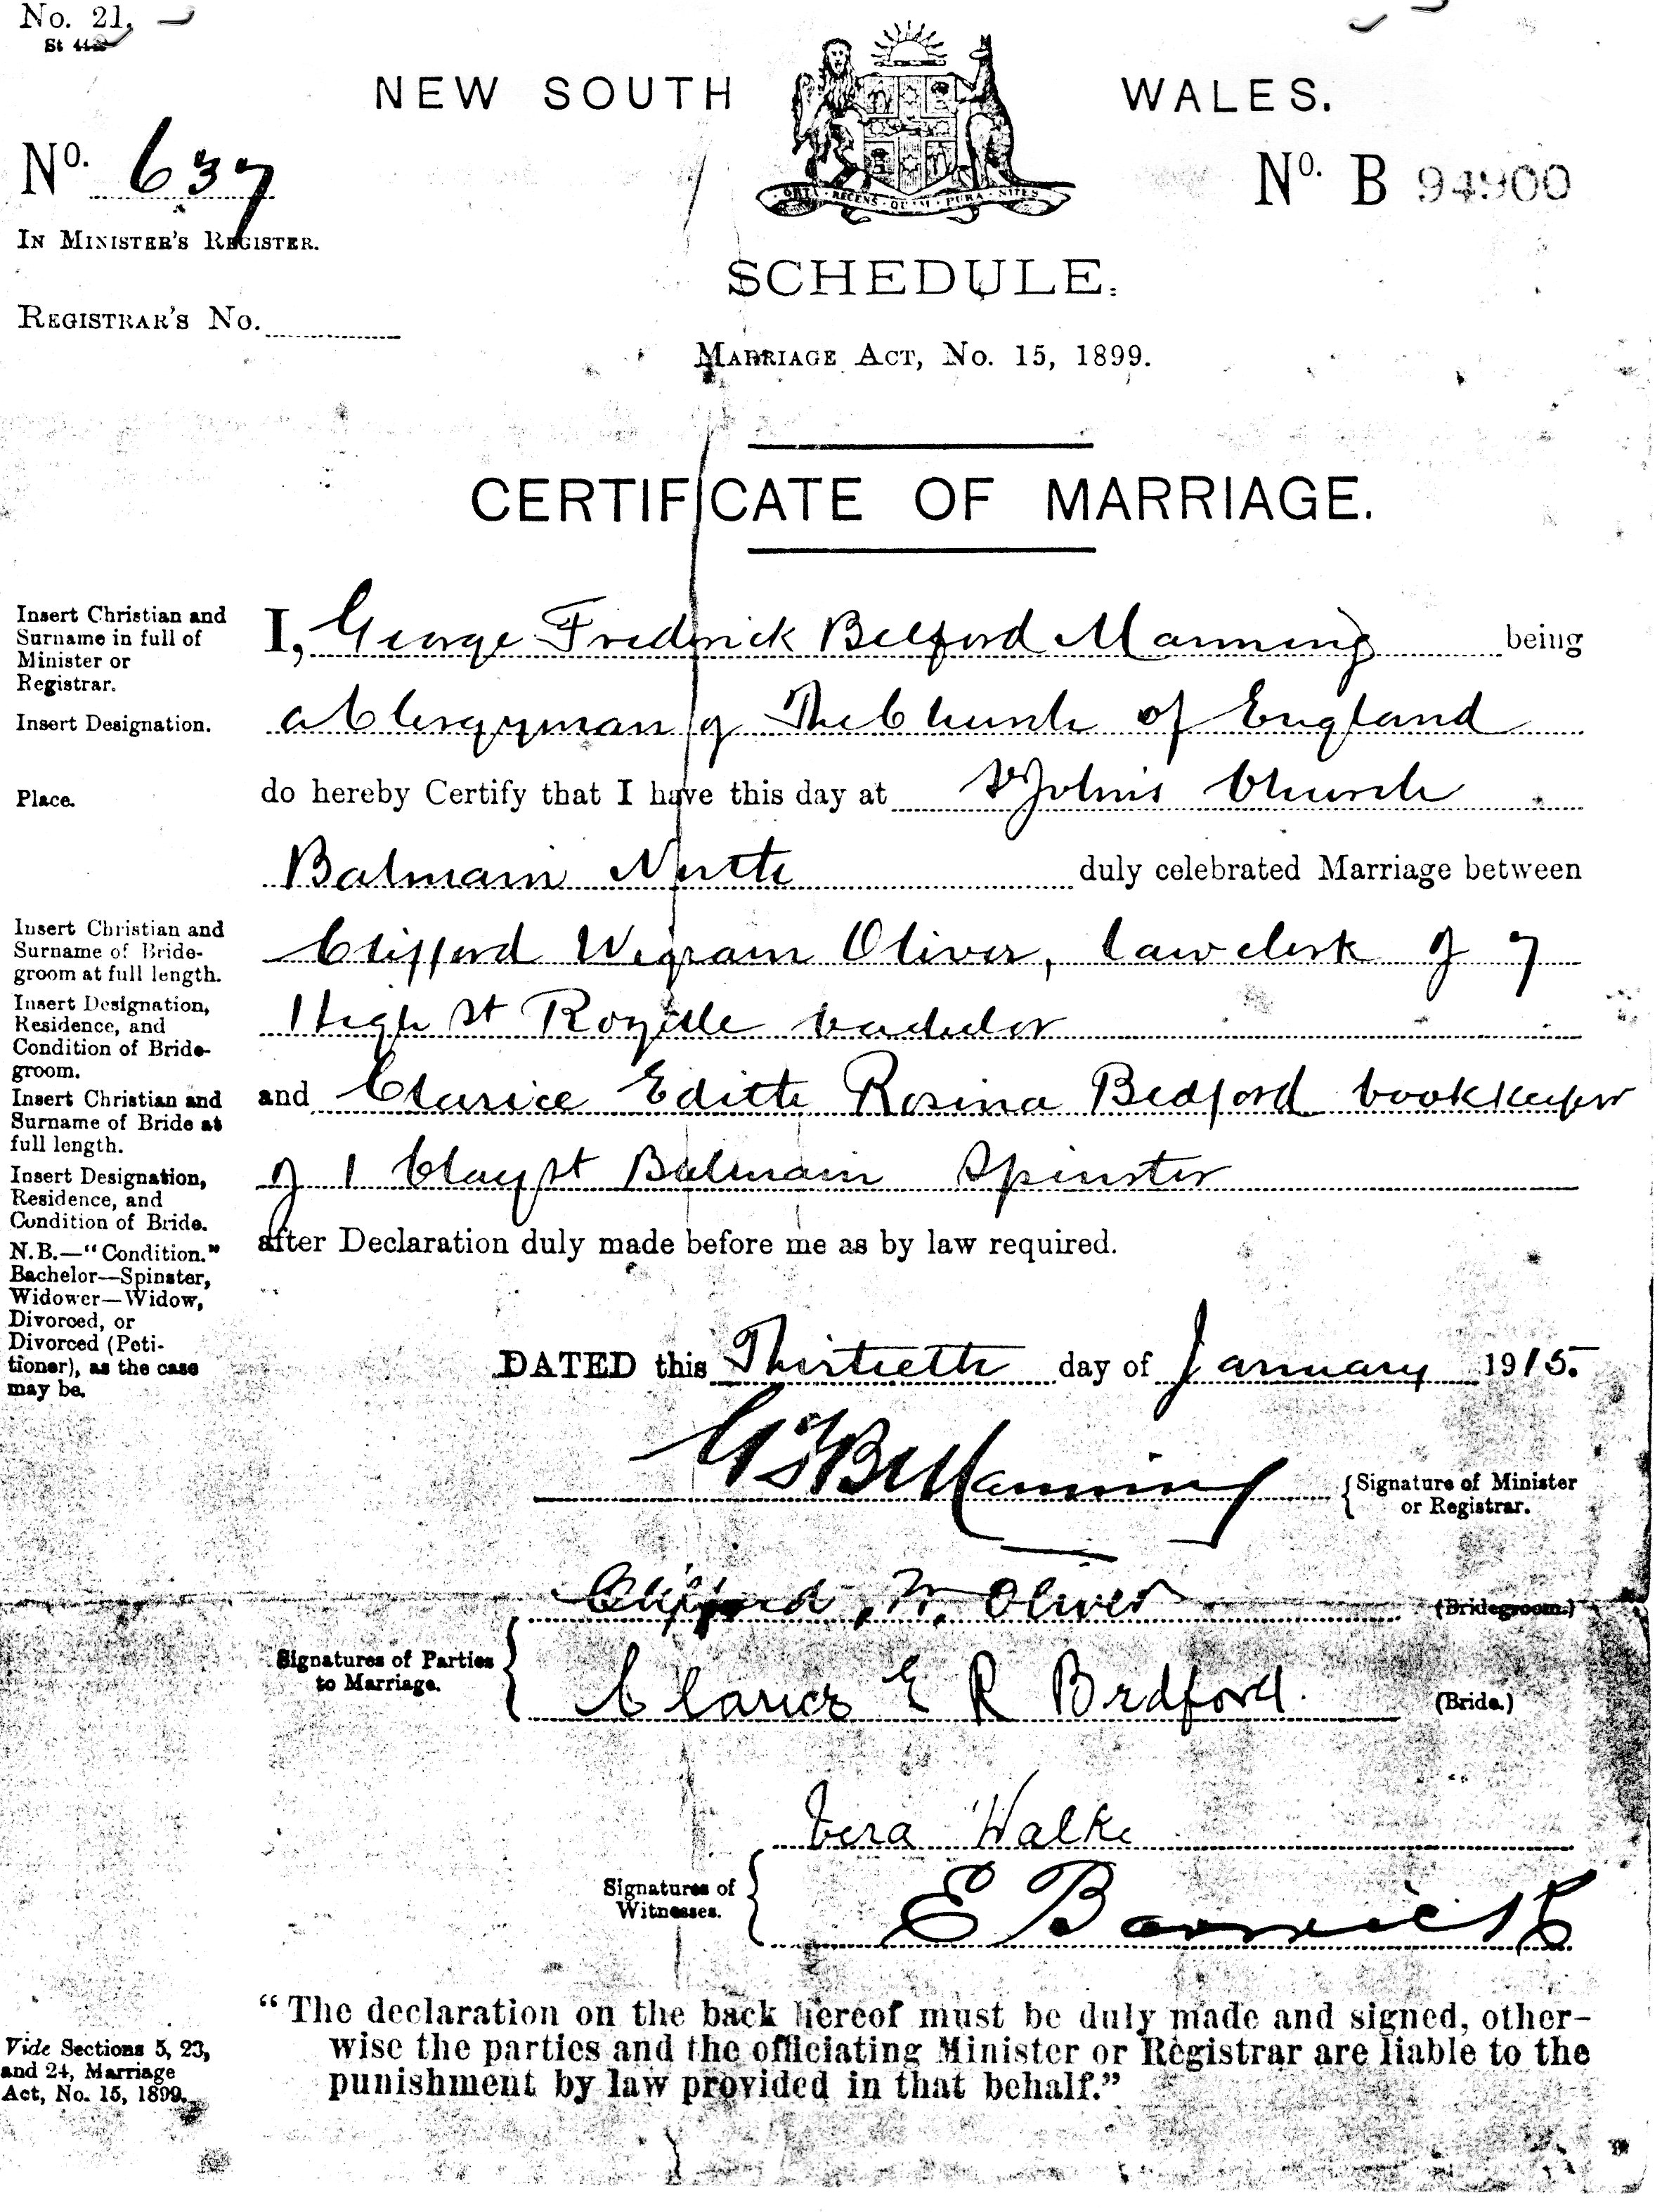 No. 21.
St 44
NEW SOUTH WALES.
No. 637
No. B 94900
IN MINISTER'S REGISTER.
SCHEDULE.
REGISTRAR'S No.
MARRIAGE ACT, No. 15, 1899.
CERTIFICATE OF MARRIAGE.
Insert Christian and
Surname in full of
Minister or
Registrar.
I, George Fredrick Belford Manning being
Insert Designation.
a Clergyman of The Church of England
Place.
do hereby Certify that I have this day at St John's Church
Balmain North duly celebrated Marriage between
Insert Christian and
Surname of Bride-
groom at full length.
Clifford Wigram Oliver, law clerk of 7
Insert Designation,
Residence, and
Condition of Bride-
groom.
High St Rozelle bachelor
Insert Christian and
Surname of Bride at
full length.
and Clarice Edith Rosina Bedford bookkeeper
Insert Designation,
Residence, and
Condition of Bride.
of 1 Clay St Balmain Spinster
N.B.—"Condition."
Bachelor—Spinster,
Widower—Widow,
Divorced, or
Divorced (Peti-
tioner), as the case
may be.
after Declaration duly made before me as by law required.
DATED this Thirtieth day of January 1915.
G F B Manning
Signature of Minister
or Registrar.
Clifford W. Oliver (Bridegroom.)
Signatures of Parties
to Marriage.
Clarice E R Bedford. (Bride.)
Vera Walke
Signatures of
Witnesses.
E Barwick
"The declaration on the back hereof must be duly made and signed, other-
wise the parties and the officiating Minister or Registrar are liable to the
punishment by law provided in that behalf."
Vide Sections 5, 23,
and 24, Marriage
Act, No. 15, 1899.